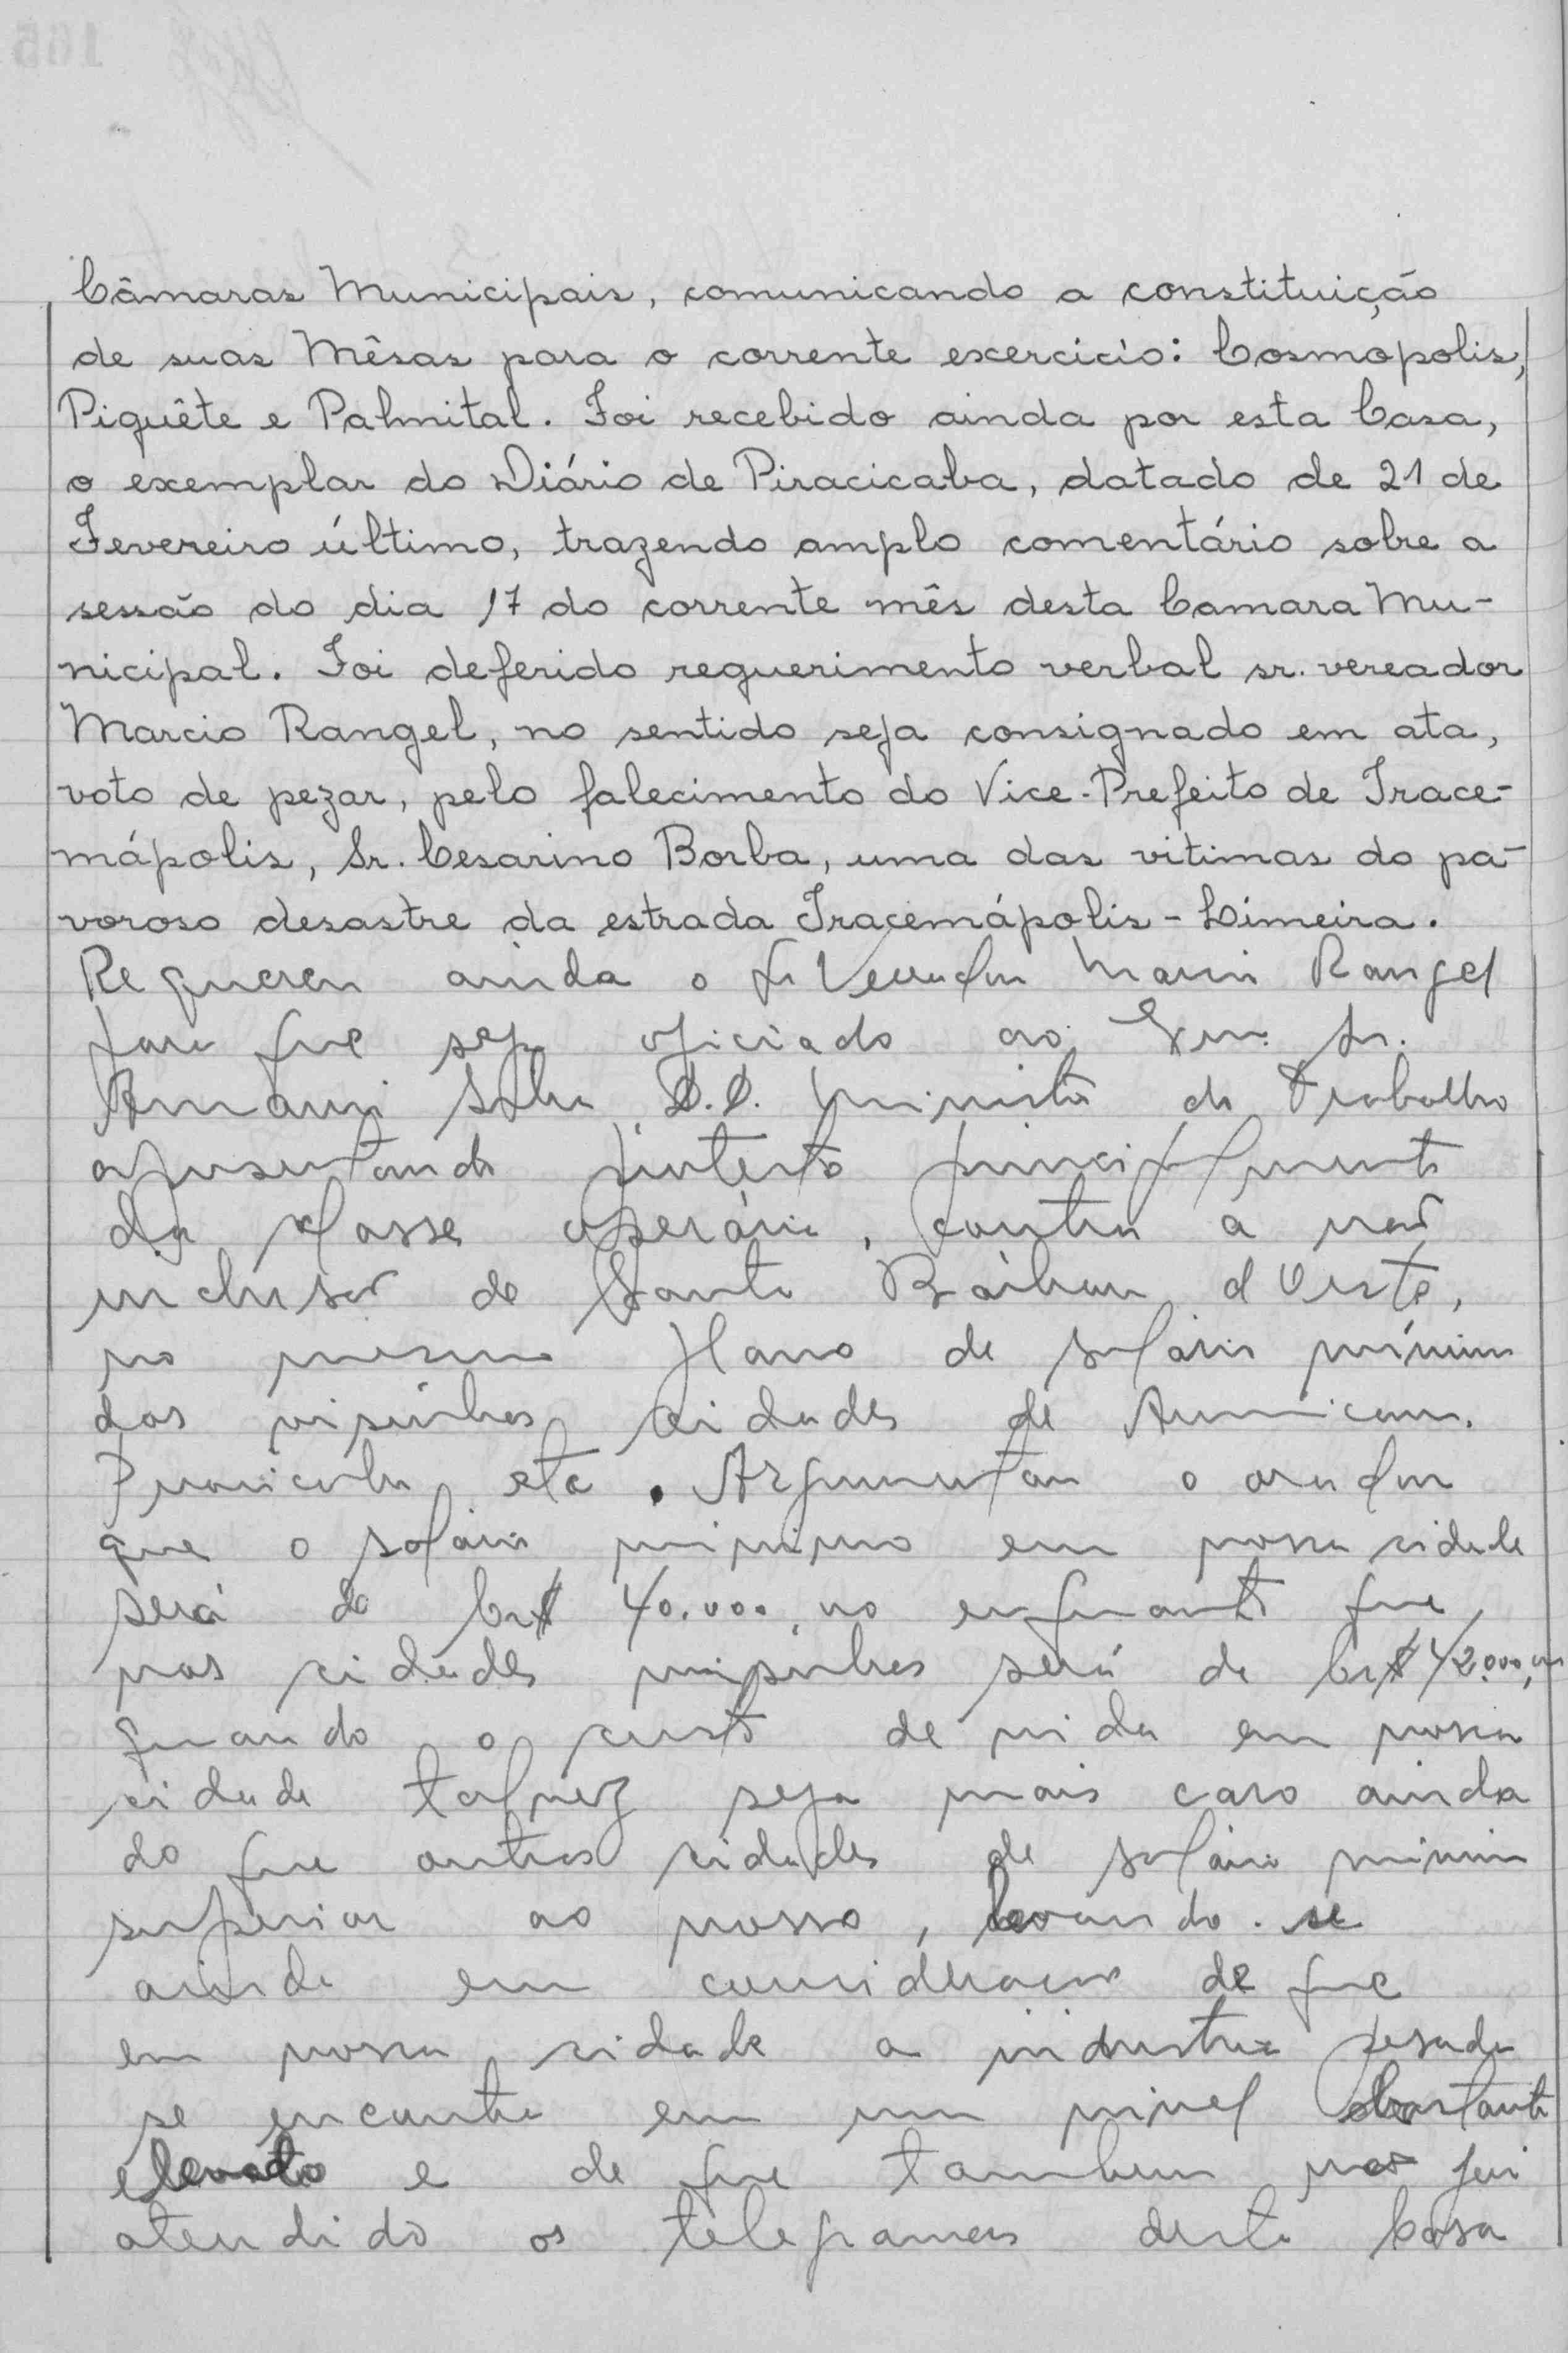 Câmaras Municipais, comunicando a constituição
de suas Mêsas para o corrente exercício: Cosmopolis,
Piquête e Palmital. Foi recebido ainda por esta Casa,
o exemplar do Diário de Piracicaba, datado de 21 de
Fevereiro último, trazendo amplo comentário sobre a
sessão do dia 17 do corrente mês desta Camara Mu-
nicipal. Foi deferido requerimento verbal sr. vereador
Marcio Rangel, no sentido seja consignado em ata,
voto de pezar, pelo falecimento do Vice-Prefeito de Irace-
mápolis, Sr. Cesarino Borba, uma das vitimas do pa-
voroso desastre da estrada Iracemápolis - Limeira.
Requereu ainda o sr Vereador Marcio Rangel
para que seja oficiado ao Exmo. Sr.
Amauri Silva, D.D. Ministro do Trabalho
apresentando protesto principalmente
da classe operária, contra a não
inclusão de Santa Bárbara d'Oeste,
no mesmo plano de salário mínimo
das visinhas cidades de Americana.
Piracicaba etc. Argumentou o orador
que o salário minimo em nossa cidade
será de Cr$ 40.000,00 enquanto que
nas cidades visinhas será de Cr$ 42.000,00
quando o custo de vida em nossa
cidade talvez seja mais caro ainda
do que outras cidades de salário mínimo
superior ao nosso, levando-se
ainda em consideração de que
em nossa cidade a industria pesada
se encontra em um nivel bastante
elevado e de que tambem não foi
atendido os telegramas desta Casa